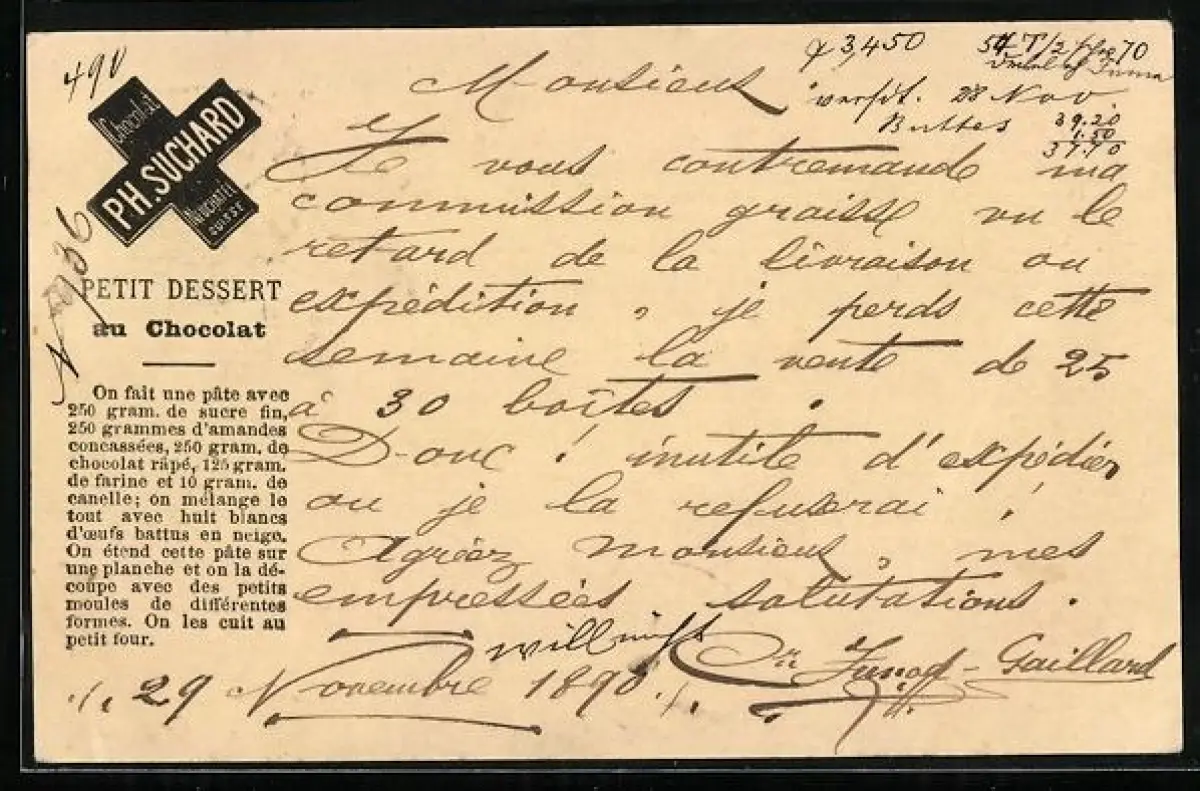 490
Chocolat
PH. SUCHARD
Neuchatel
SUISSE
PETIT DESSERT
au Chocolat
On fait une pâte avec
250 gram. de sucre fin,
250 grammes d'amandes
concassées, 250 gram. de
chocolat râpé, 125 gram.
de farine et 10 gram. de
canelle; on mélange le
tout avec huit blancs
d'œufs battus en neige.
On étend cette pâte sur
une planche et on la dé-
coupe avec des petits
moules de différentes
formes. On les cuit au
petit four.
3,450
28 Nov.
Buttes 39.20
1.50
37.70
Monsieur
Je vous contremande ma
commission graisse vu le
retard de la livraison ou
expédition, je perds cette
semaine la vente de 25
à 30 boîtes.
Donc! inutile d'expédier
ou je la refuserai!
Agréez monsieur, mes
empressées salutations.
will nicht
Junod-Gaillard
29 Novembre 1890.